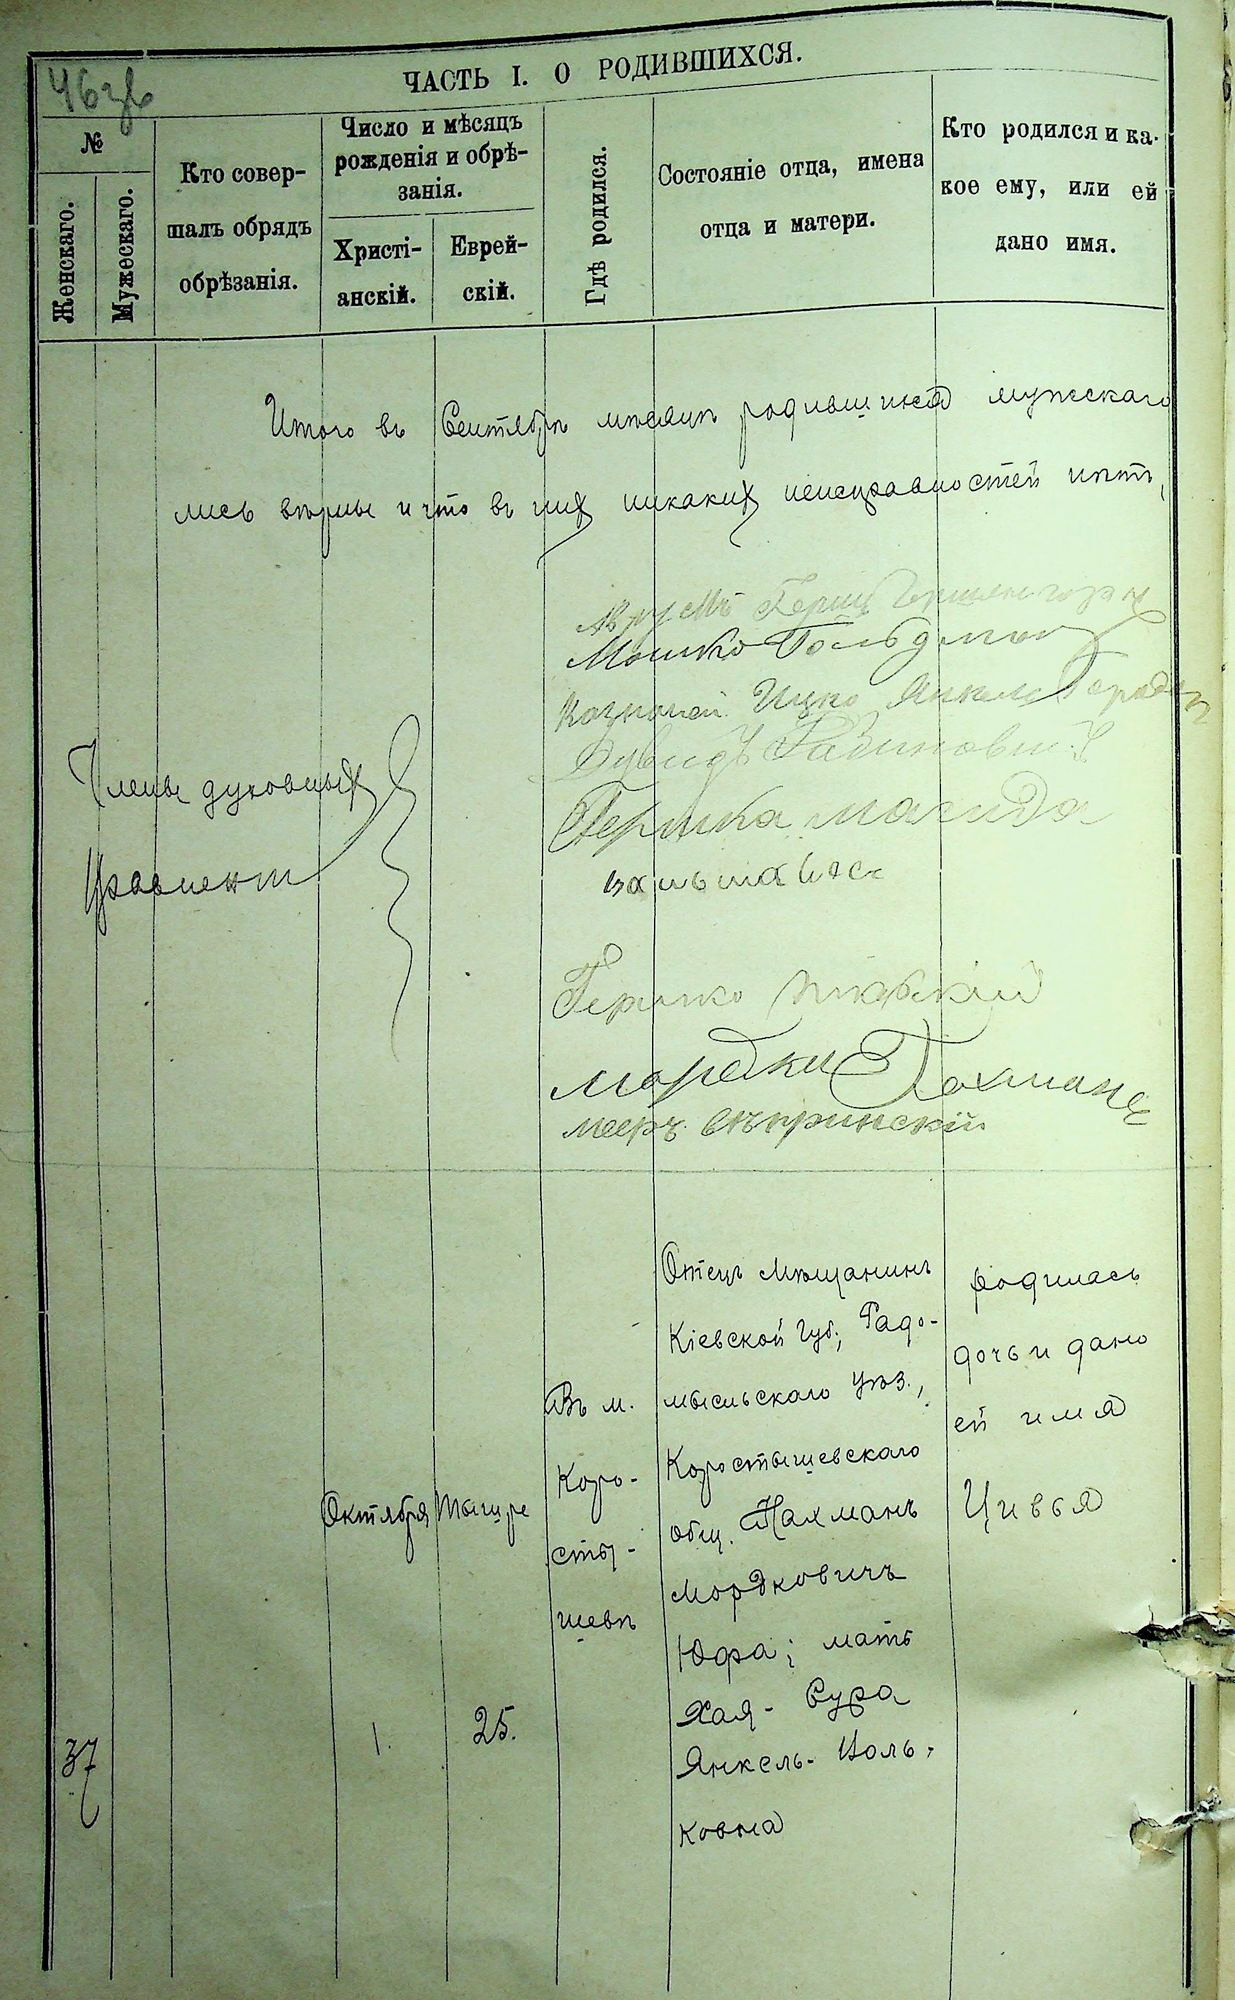 46 зв
ЧАСТЬ I. О РОДИВШИХСЯ.
№
Женскаго.
Мужескаго.
Кто совер-
шалъ обрядъ
обрѣзанія.
Число и мѣсяцъ
рожденія и обрѣ-
занія.
Христі-
анскій.
Еврей-
скій.
Гдѣ родился.
Состояніе отца, имена
отца и матери.
Кто родился и ка-
кое ему, или ей
дано имя.
Итого въ Сентябрѣ мѣсяцѣ родившихся мужскаго
лись вѣрны и что въ них никаких неисправностей нѣтъ,
Члены духовных
Правленій
Герш
Мошко Гольдман
Казначей Ицко Янкель
Дувидъ Рабинович
Гершка магида
Гершко
мордки Пахмане
мееръ
37
Октября
1.
Тышре
25.
Въ м.
Коро-
сты-
шевѣ
Отецъ Мѣщанинъ
Кіевской губ., Радо-
мысльскаго уѣз.,
Коростышевскаго
общ. Нахманъ
Мордковичъ
Юфа; мать
Хая-Сура
Янкель-Іоль-
ковна
родилась
дочь и дано
ей имя
Цивья